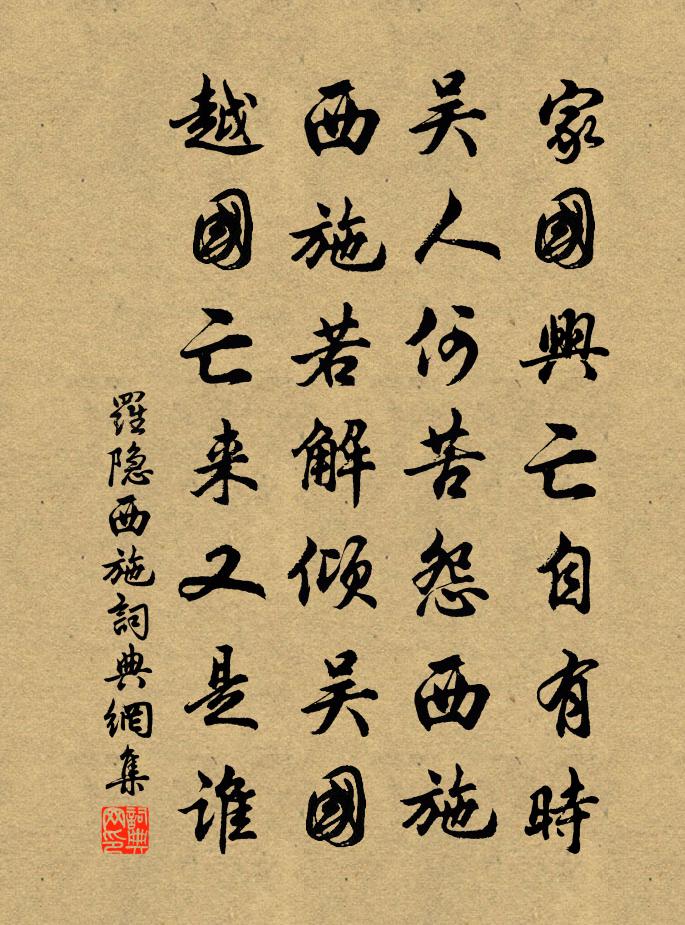 家國興亡自有時
吴人何苦怨西施
西施若解傾吴國
越國亡来又是誰
羅隐西施詞典網集
詞典
网印